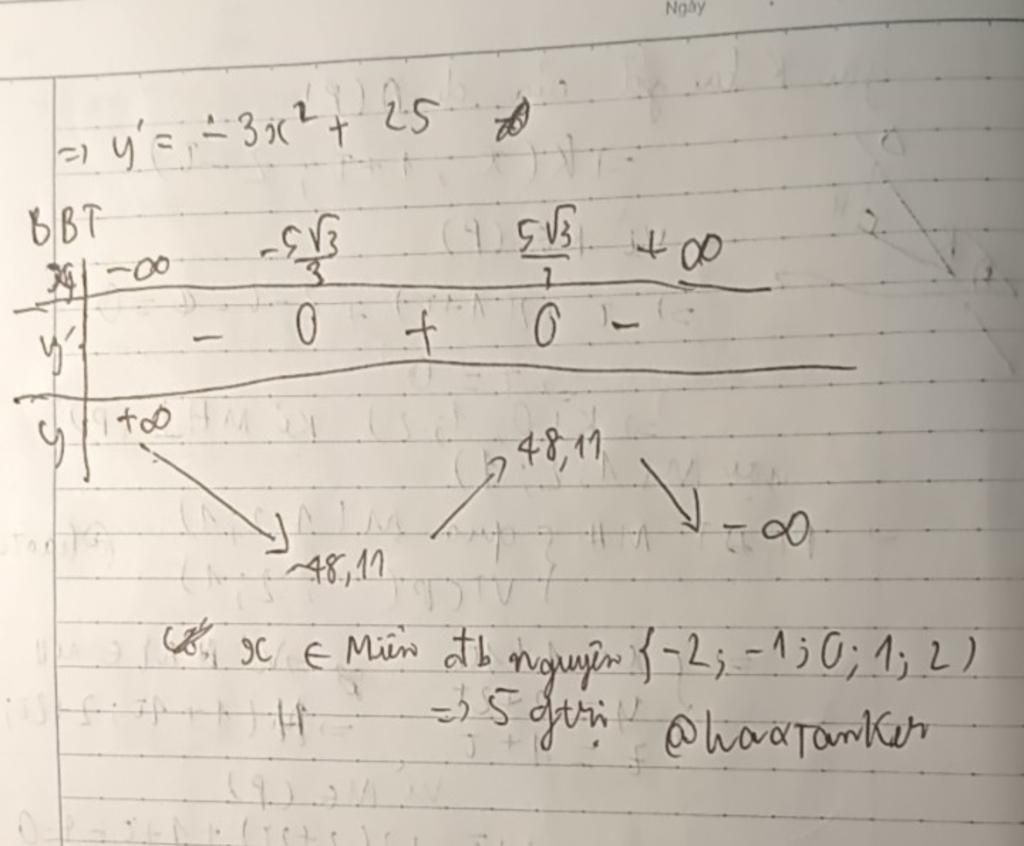 Ngày
=> y' = -3x² + 25
BBT
x -∞ -5√3/3 5√3/3 +∞
y' - 0 + 0 -
y +∞ -48,11 48,11 -∞
x ∈ Miền đb nguyên {-2; -1; 0; 1; 2}
=> 5 gtrị